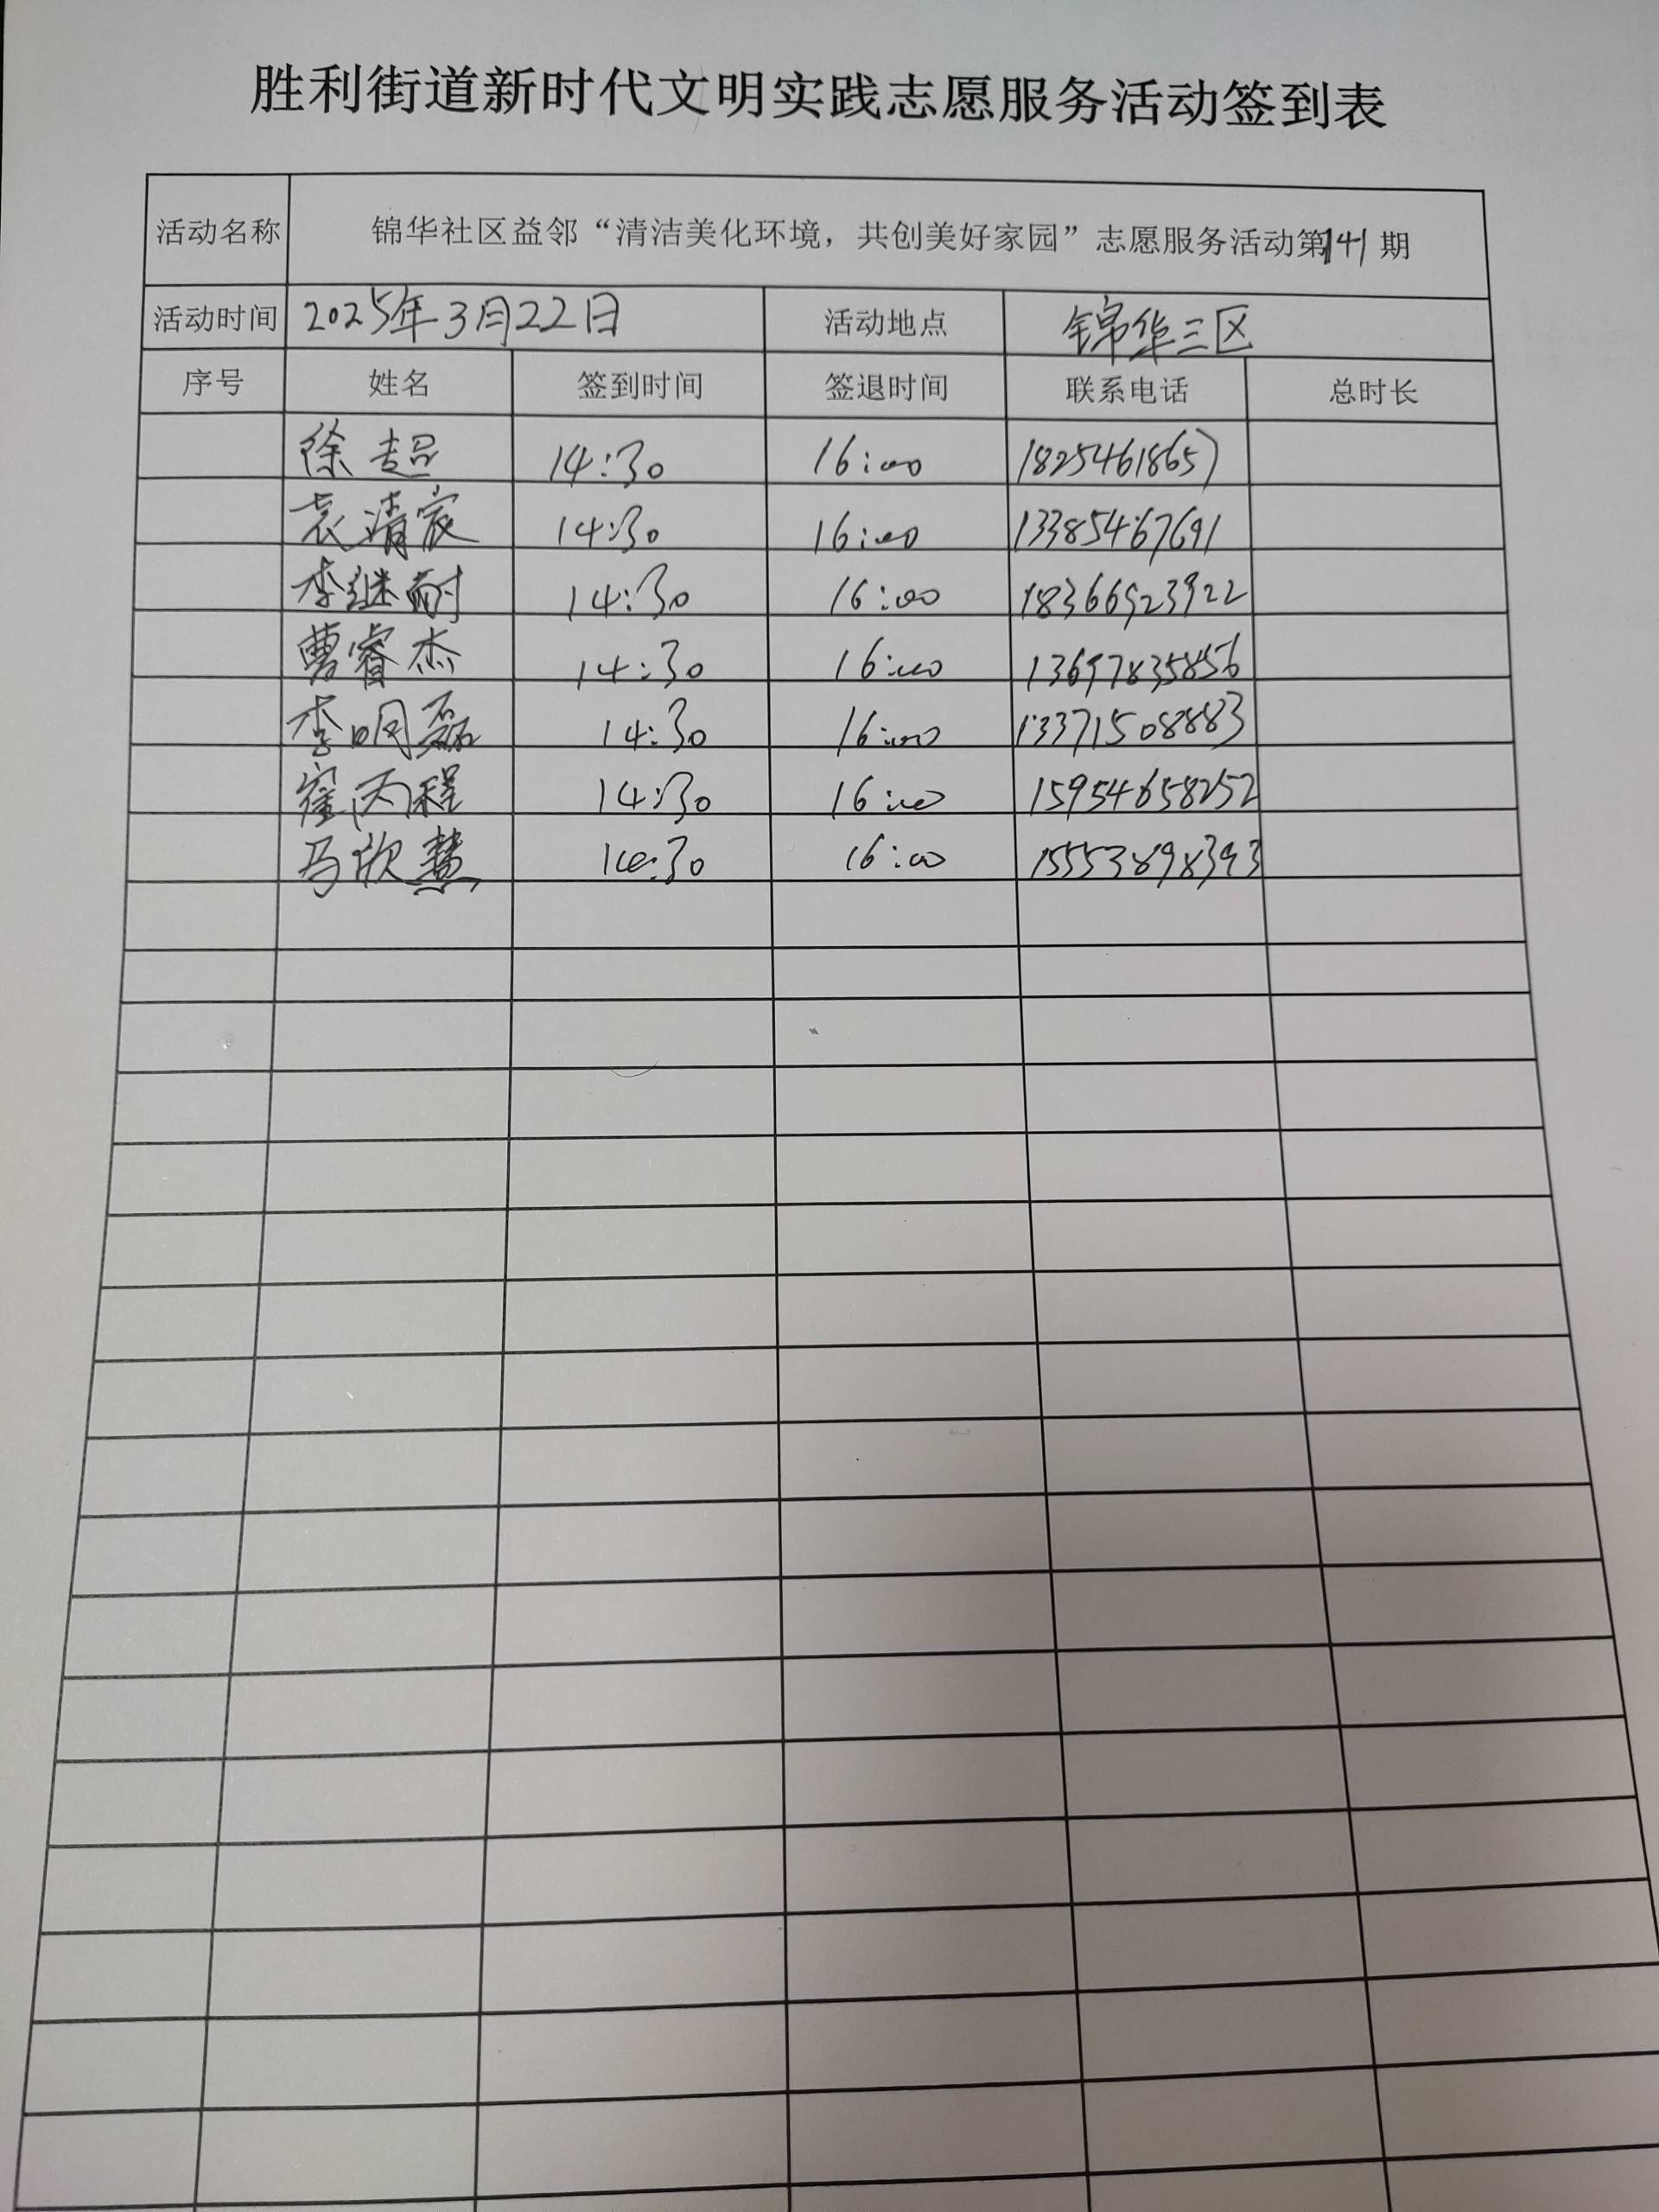 胜利街道新时代文明实践志愿服务活动签到表
活动名称 锦华社区益邻“清洁美化环境，共创美好家园”志愿服务活动第141期
活动时间 2025年3月22日 活动地点 锦华三区
序号 姓名 签到时间 签退时间 联系电话 总时长
徐超 14:30 16:00 18254618657
袁清宸 14:30 16:00 13385467691
李继耐 14:30 16:00 18366923922
曹睿杰 14:30 16:00 13697835856
李明磊 14:30 16:00 13371508883
崔丙程 14:30 16:00 15954658252
马欣慧 14:30 16:00 15553898393